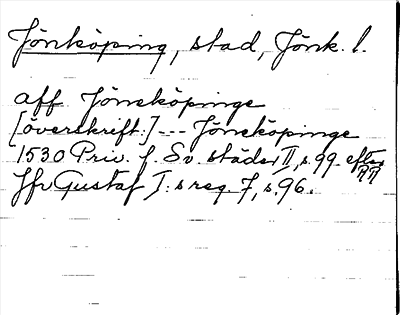 Jönköping, stad, Jönk. l.
aff Jöneköpinge
[överskrift:] --- Jöneköpinge
1530 Priv. f. Sv. städer II, s. 99. efter RR
Jfr Gustaf I:s reg. 7, s. 96.